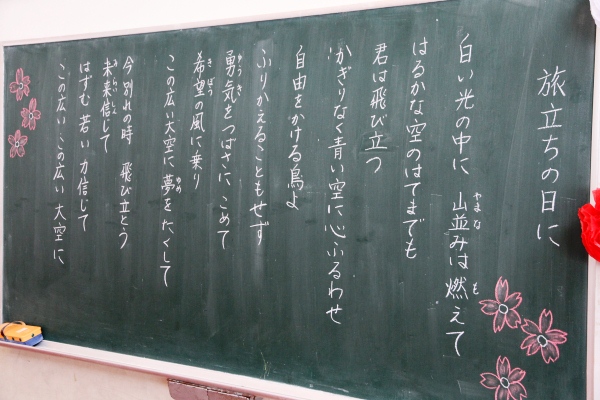 旅立ちの日に
白い光の中に 山並みは燃えて
はるかな空のはてまでも
君は飛び立つ
かぎりなく青い空に心ふるわせ
自由をかける鳥よ
ふりかえることもせず
勇気をつばさに こめて
希望の風に乗り
この広い大空に 夢を たくして
今 別れの時 飛び立とう
未来信じて
はずむ 若い 力信じて
この広い この広い 大空に